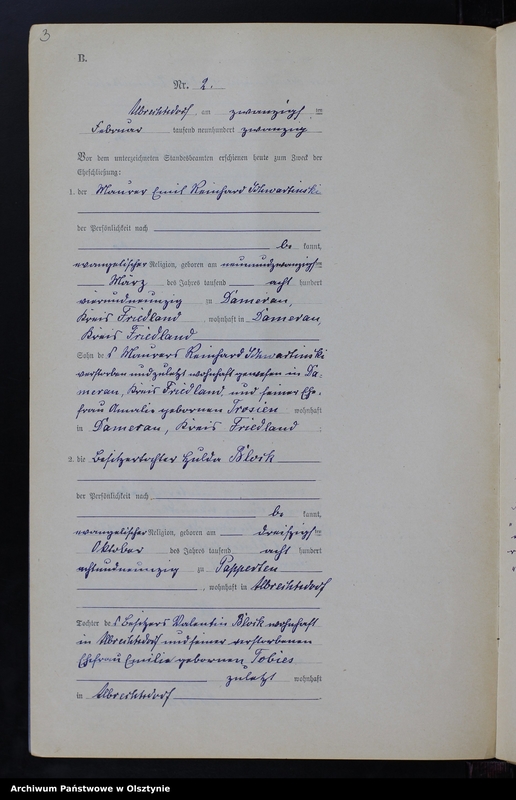 3
B.
Nr. 2.
Albrechtsdorf, am zwanzigsten
Februar tausend neunhundert zwanzig
Vor dem unterzeichneten Standesbeamten erschienen heute zum Zweck der
Eheschließung:
1. der Maurer Emil Reinhard Schwartinski
der Persönlichkeit nach
be kannt,
evangelischer Religion, geboren am neunundzwanzigsten
März des Jahres tausend acht hundert
vierundneunzig zu Damerau,
Kreis Friedland, wohnhaft in Damerau,
Kreis Friedland
Sohn des Maurers Reinhard Schwartinski
verstorben und zuletzt wohnhaft gewesen in Da-
merau, Kreis Friedland und seiner Ehe-
frau Amalie gebornen Trosien wohnhaft
in Damerau, Kreis Friedland
2. die Besitzertochter Hulda Block
der Persönlichkeit nach
be kannt,
evangelischer Religion, geboren am dreißigsten
Oktober des Jahres tausend acht hundert
achtundneunzig zu Papperten
, wohnhaft in Albrechtsdorf
Tochter des Besitzers Valentin Block wohnhaft
in Albrechtsdorf und seiner verstorbenen
Ehefrau Emilie gebornen Tobies
zuletzt wohnhaft
in Albrechtsdorf
Archiwum Państwowe w Olsztynie